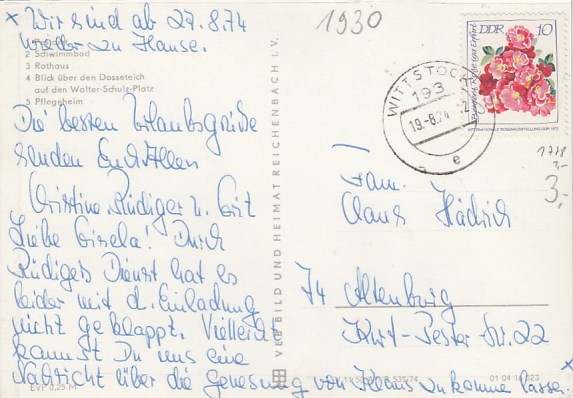 * Wir sind ab 27.8.74
wieder zu Hause.
2 Schwimmbad
3 Rathaus
4 Blick über den Dosseteich
auf den Walter-Schulz-Platz
5 Pflegeheim
Die besten Urlaubsgrüße
senden Euch Allen
Christine, Rüdiger u. Grit
Liebe Gisela! Durch
Rüdigers Dienst hat es
leider mit d. Einladung
nicht geklappt. Vielleicht
kannst Du uns eine
Nachricht über die Genesung von Klaus zukomme lassen. *
EVP 0,25 M
VEB BILD UND HEIMAT REICHENBACH i. V.
1930
DDR 10
INTERNATIONALE ROSENAUSSTELLUNG DDR 1972
WITTSTOCK
193
19.-8.74
e
1778
3,-
3,-
Fam.
Claus Hädrich
74 Altenburg
Kurt-Fester-Str. 22
01 04 14 023